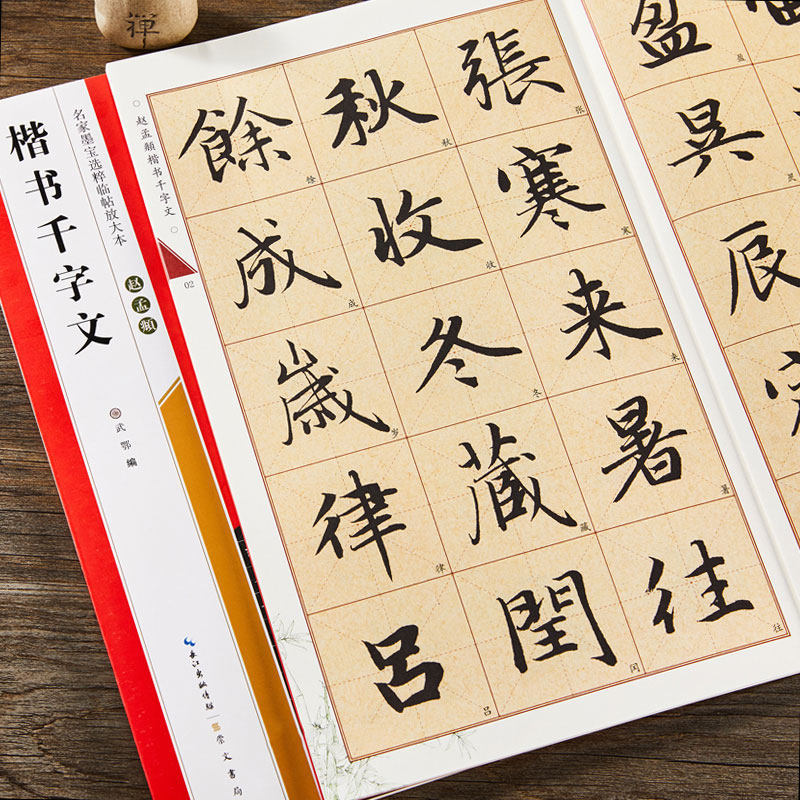 禪
名家墨宝选粹临帖放大本
楷书千字文
赵孟頫
武鄂编
长江出版传媒
崇文书局
赵孟頫楷书千字文
02
盈昃辰
盈
張寒来暑往
张寒来暑往
秋收冬藏閏
秋收冬藏闰
餘成歲律呂
馀成岁律吕